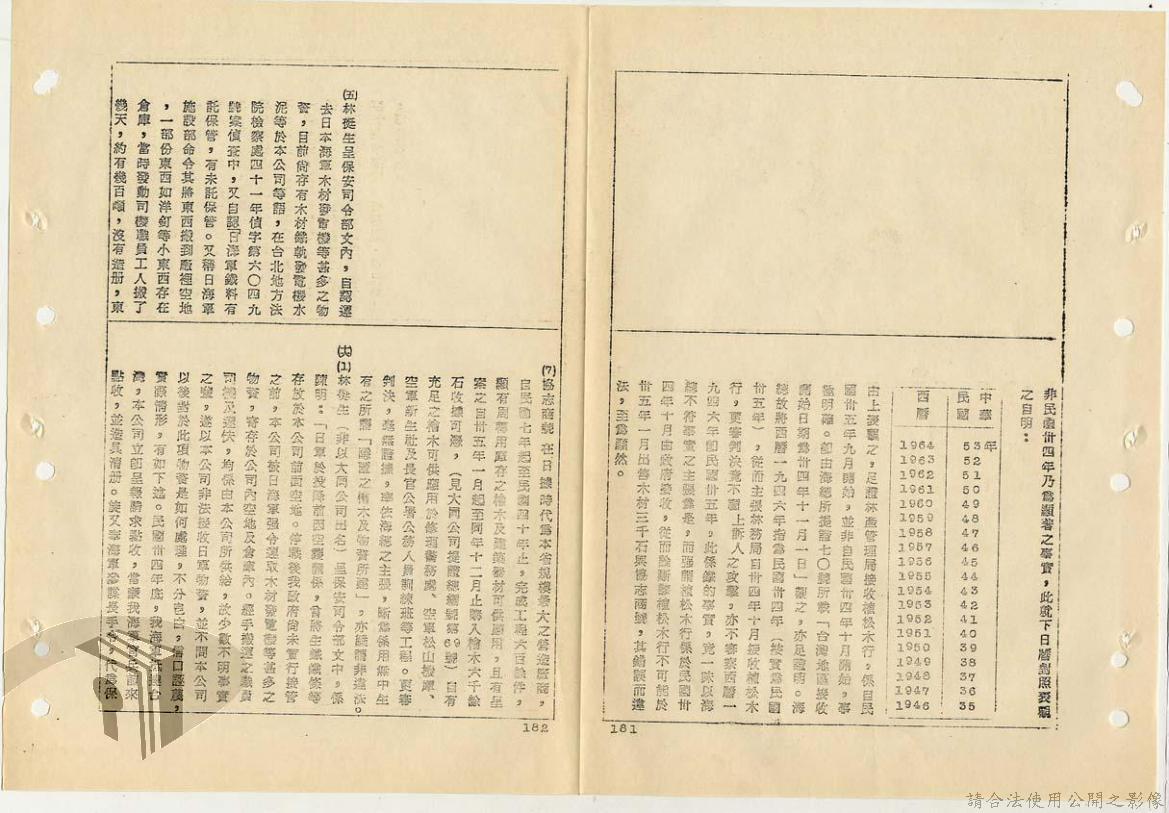 非民國卅四年乃為顯著之事實，此就下日曆對照表觀
之自明：
中華民國 西曆
53年 1964
52 1963
51 1962
50 1961
49 1960
48 1959
47 1958
46 1957
45 1956
44 1955
43 1954
42 1953
41 1952
40 1951
39 1950
38 1949
37 1948
36 1947
35 1946
由上表觀之，足證林產管理局接收植松木行，係自民
國卅五年九月開始，並非自民國卅四年十月開始，事
極明確。即由海總所提證七〇號所載「台灣地區接收
開始日期為卅四年十一月一日」觀之，亦足證明。海
總故將西曆一九四六年指為民國卅四年（按實為民國
卅五年），從而主張林務局自卅四年十月接收植松木
行，更審判決竟不顧上訴人之攻擊，亦不審察西曆一
九四六年即民國卅五年，此係鐵的事實，竟一味以海
總不符事實之主張為是，而強謂植松木行係於民國卅
四年十月由政府接收，從而論斷謂植松木行不可能於
卅五年一月出售木材三千石與協志商號，其錯誤而違
法，至為顯然。
181
(7)協志商號在日據時代為本省規模最大之營造廠商，
自民國七年起至民國四十年止，完成工程六百餘件，
願有周轉用庫存之檜木及建築器材可供應用，且有呈
案之自卅五年一月起至同年十二月止購入檜木六千餘
石收據可憑，（見大同公司提證總編號第69號）自有
充足之檜木可供應用於修理警務處、空軍松山機庫、
空軍新生社及長官公署公務人員訓練班等工程。更審
判決，毫無證據，率依海總之主張，斷為係用無中生
有之所謂「隱匿之檜木及物資所建」，亦難謂非違法。
(五)林挺生呈保安司令部文內，自認運
去日本海軍木材發電機等甚多之物
資，目前尚存有木材鐵軌發電機水
泥等於本公司等語，在台北地方法
院檢察處四十一年偵字第六〇四九
號案偵查中，又自認「日海軍鐵料有
託保管，有未託保管。又稱日海軍
施設部命令其將東西搬到廠裡空地
，一部份東西如洋釘等小東西存在
倉庫，當時發動司機職員工人搬了
幾天，約有幾百噸，沒有造册，東
(六)(1)林挺生（非以大同公司出名）呈保安司令部文中，係
陳明：「日軍於投降前因空襲關係，曾將生鐵鐵條等
存放於本公司前面空地。停戰後我政府尚未實行接管
之前，本公司被日海軍强令運取木材發電機等甚多之
物資，寄存於公司內空地及倉庫內。經手搬運之職員
司機及運伕，均係由本公司所供給，故少數不明事實
之輩，遂以本公司非法接收日軍物資，並不問本公司
以後對於此項物資是如何處理，不分皂白，信口誣蔑，
實際情形，有如下述。民國卅四年底，我海軍抵達台
灣，本公司立即呈報請求點收，當蒙我海軍官長前來
點收，並造具清册。旋又奉海軍參謀長手令，代為保
182
請合法使用公開之影像